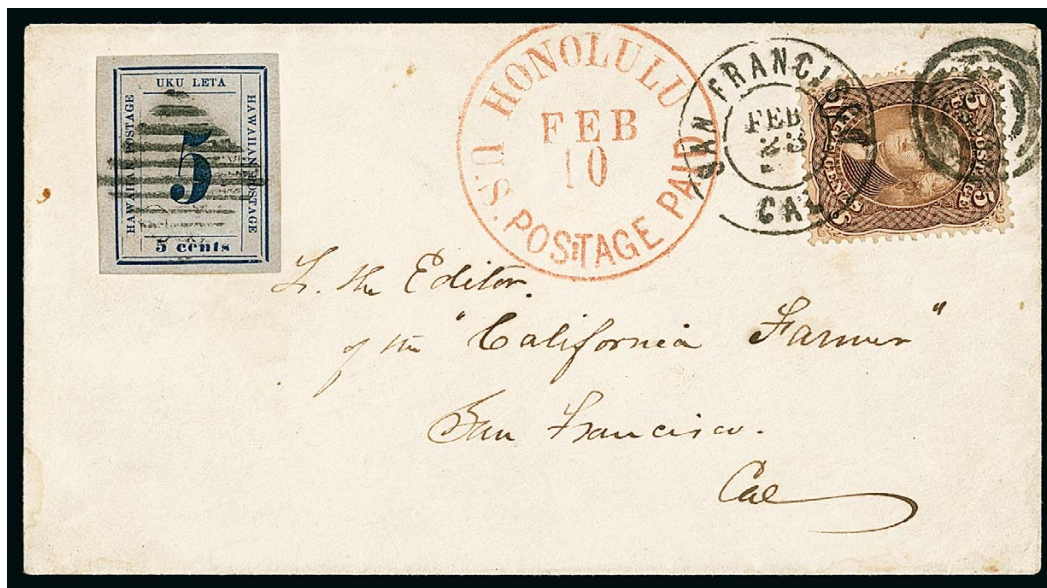 UKU LETA
HAWAIIAN POSTAGE
5
HAWAIIAN POSTAGE
5 cents
HONOLULU
FEB
10
U.S. POSTAGE PAID
SAN FRANCISCO
FEB
CAL
5 5
U.S. POSTAGE
FIVE CENTS
To the Editor.
of the "California Farmer"
San Francisco.
Cal